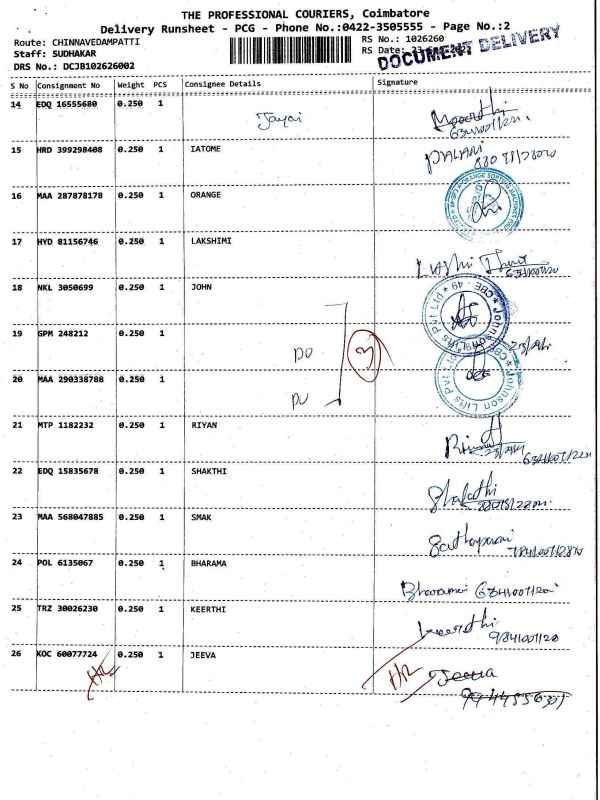 THE PROFESSIONAL COURIERS, Coimbatore
Delivery Runsheet - PCG - Phone No.:0422-3505555 - Page No.:2
Route: CHINNAVEDAMPATTI
RS No.: 1026260
Staff: SUDHAKAR
RS Date:
DOCUMENT DELIVERY
DRS No.: DCJB102626002
S No Consignment No Weight PCS Consignee Details Signature
14 EDQ 16555680 0.250 1
15 HRD 399298408 0.250 1 IATOME PALANI
16 MAA 287878178 0.250 1 ORANGE
17 HYD 81156746 0.250 1 LAKSHIMI
18 NKL 3050699 0.250 1 JOHN
19 GPM 248212 0.250 1
DO 3
20 MAA 290338788 0.250 1
Johnson Lifts Pvt Ltd
21 MTP 1182232 0.250 1 RIYAN
22 EDQ 15835678 0.250 1 SHAKTHI
23 MAA 568047885 0.250 1 SMAK
24 POL 6135067 0.250 1 BHARAMA
25 TRZ 30026230 0.250 1 KEERTHI
26 KOC 60077724 0.250 1 JEEVA Jeeva